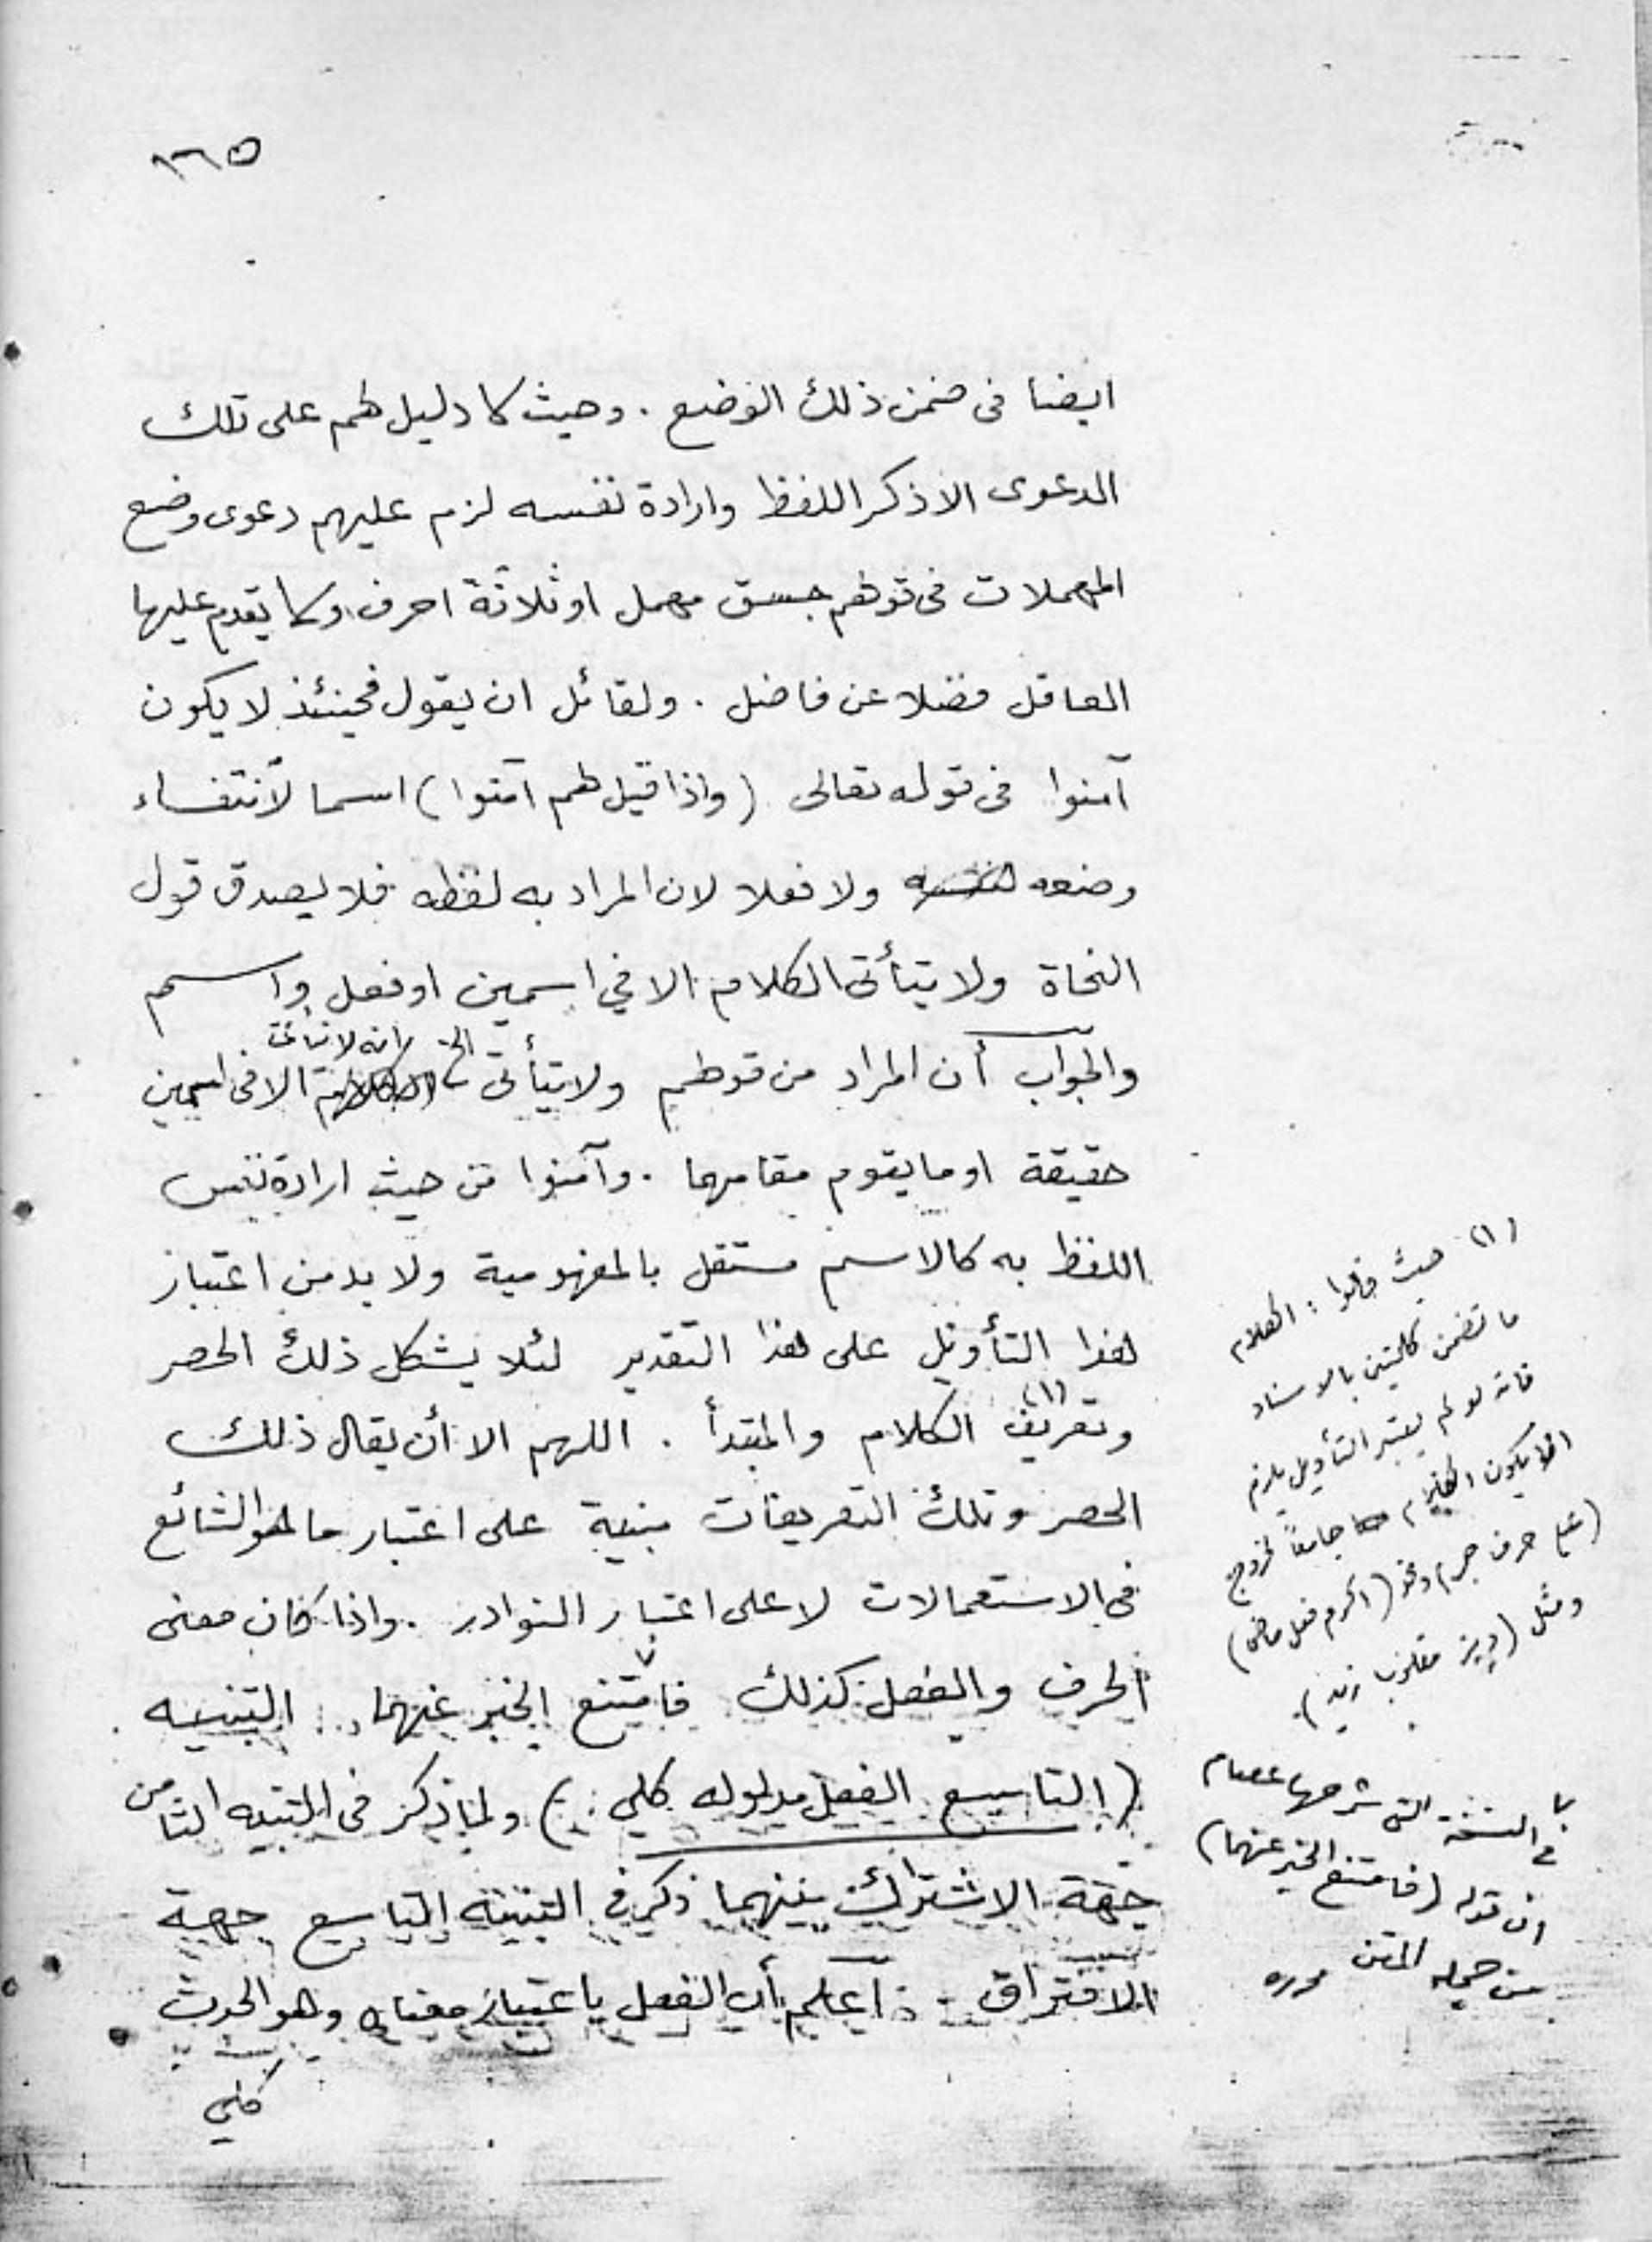 ١٦٥
ايضا فى ضمن ذلك الوضع . وحيث لا دليل لهم على تلك
الدعوى الا ذكر اللفظ وارادة نفسه لزم عليهم دعوى وضع
المهملات فى قولهم جسق مهمل او ثلاثة احرف ولا يقدم عليها
العاقل فضلا عن فاضل . ولقائل ان يقول فحينئذ لا يكون
آمنوا فى قوله تعالى (واذا قيل لهم آمنوا) اسما لأنتفاء
وضعه ولا فعلا لان المراد به لفظه فلا يصدق قول
النحاة ولا يتأتى الكلام الا في اسمين او فعل واسم
والجواب أن المراد من قولهم ولا يتأتى الخ انه لا يتأتى الا فى اسمين
حقيقة او ما يقوم مقامهما . وآمنوا من حيث ارادة نفس
اللفظ به كالاسم مستقل بالمفهومية ولا بد من اعتبار
هذا التأويل على هذا التقدير لئلا يشكل ذلك الحصر
وتعريف (١) الكلام والمبتدأ . اللهم الا أن يقال ذلك
الحصر وتلك التعريفات مبنية على اعتبار ما هو الشائع
فى الاستعمالات لا على اعتبار النوادر . واذا كان معنى
الحرف والفعل كذلك فامتنع الخبر عنهما . التنبيه
(التاسع الفعل مدلوله كلي .) ولما ذكر فى التنبيه الثامن
جهة الاشتراك بينهما ذكر فى التنبيه التاسع جهة
الافتراق . اعلم أن الفعل باعتبار معناه وهو الحدث
كلي
(١) حيث قالوا : الكلام
ما تضمن كلمتين بالاسناد
فانه لو لم يعتبر التأويل يلزم
ان لا يكون الكلام جامعاً لخروج
(على حرف جر) ونحو (اكرم فعل ماض)
ومثل (ديز مقلوب زيد) .
٧ في النسخة التى شرحها عصام
ان قوله (فامتنع الخبر عنهما)
من جملة المتن محرره